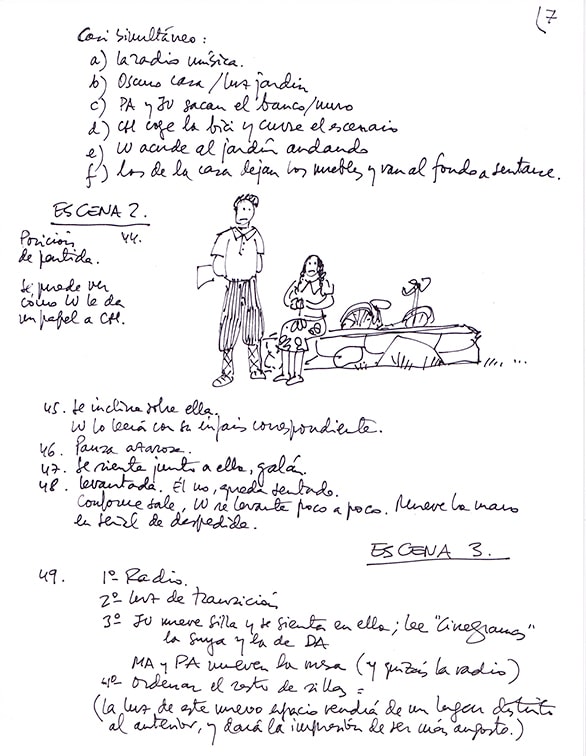 7
Casi simultáneo:
a) la radio música.
b) Oscuro casa/luz jardín
c) PA y JU sacan el banco/muro
d) CH coge la bici y cruza el escenario
e) LU acude al jardín andando
f) Los de la casa dejan los muebles y van al fondo a sentarse.
ESCENA 2.
Posición 44.
de partida.
Se puede ver
cómo LU le da
un papel a CH.
45. Se inclina sobre ella.
LU lo leerá con su énfasis correspondiente.
46. Pausa azarosa.
47. Se sienta junto a ella, galán.
48. levantada. Él no, queda sentado.
Conforme sale, LU se levanta poco a poco. Mueve la mano
en señal de despedida.
ESCENA 3.
49. 1º Radio.
2º luz de transición
3º JU mueve silla y se sienta en ella; lee "Cinegramas"
la suya y la de DA
MA y PA mueven la mesa (y quizás la radio)
4º ordenar el resto de sillas
(la luz de este nuevo espacio vendrá de un lugar distinto
al anterior, y dará la impresión de ser más angosto.)